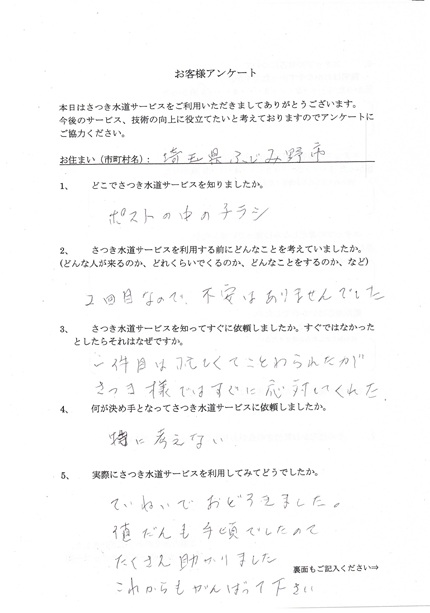 お客様アンケート
本日はさつき水道サービスをご利用いただきましてありがとうございます。
今後のサービス、技術の向上に役立てたいと考えておりますのでアンケートに
ご協力ください。
お住まい（市町村名）： 埼玉県ふじみ野市
1、 どこでさつき水道サービスを知りましたか。
ポストの中のチラシ
2、 さつき水道サービスを利用する前にどんなことを考えていましたか。
(どんな人が来るのか、どれくらいでくるのか、どんなことをするのか、など)
2回目なので、不安はありませんでした
3、 さつき水道サービスを知ってすぐに依頼しましたか。すぐではなかった
としたらそれはなぜですか。
一件目は忙しくてことわられたが
さつき様ではすぐに応対してくれた。
4、 何が決め手となってさつき水道サービスに依頼しましたか。
特に考えない
5、 実際にさつき水道サービスを利用してみてどうでしたか。
ていねいでおどろきました。
値だんも手頃でしたので
たくさん助かりました
これからもがんばって下さい
裏面もご記入ください⇒